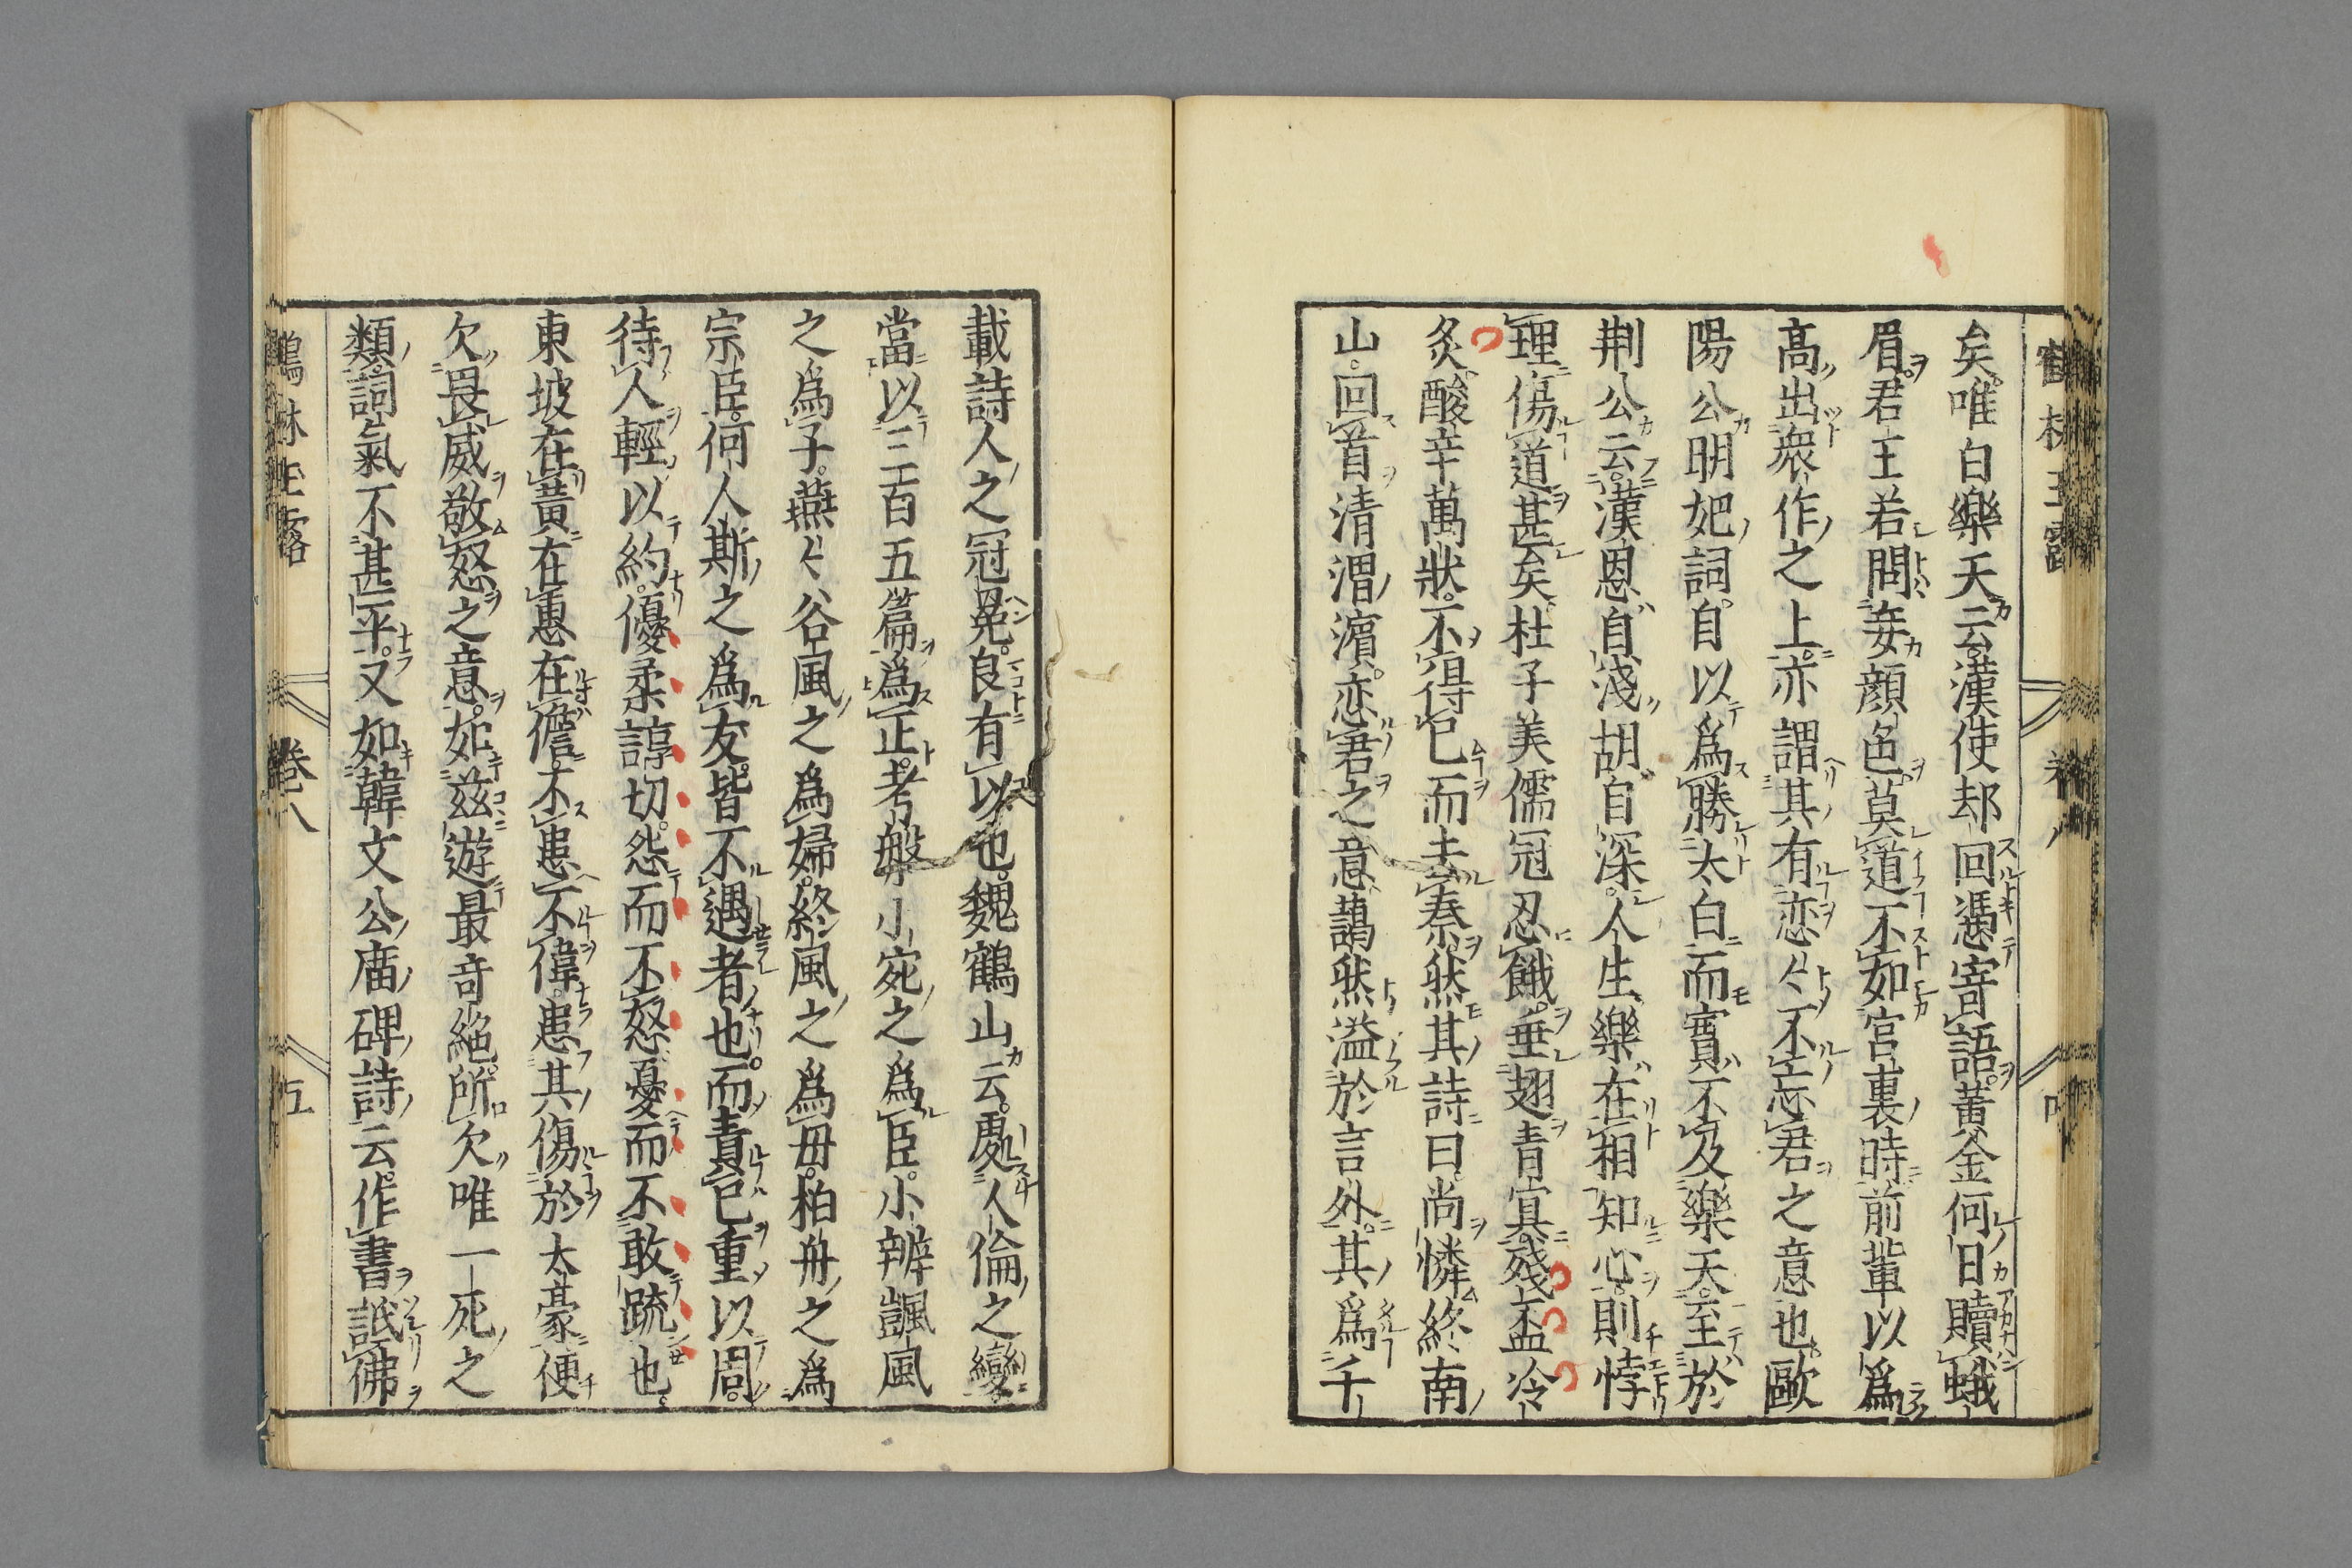 矣唯白樂天云漢使却回憑寄語黃金何日贖蛾
眉君王若問妾顏色莫道不如宮裏時前輩以爲
高出衆作之上亦謂其有恋々不忘君之意也歐
陽公明妃詞自以爲勝太白而實不及樂天至於
荆公云漢恩自淺胡自深人生樂在相知心則悖
理傷道甚矣杜子美儒冠忍餓垂翅青冥殘盃冷
炙酸辛萬狀不得已而去秦然其詩曰尚憐終南
山回首清渭濵恋君之意藹然溢於言外其爲千
載詩人之冠冕良有以也魏鶴山云處人倫之變
當以三百五篇爲正考般小宛之爲臣小辨凱風
之爲子燕々谷風之爲婦終風之爲毋柏舟之爲
宗臣何人斯之爲友皆不遇者也而責已重以周
待人輕以約優柔諄切怨而不怒憂而不敢疏也
東坡在黃在惠在儋不患不偉患其傷於太豪便
欠畏威敬怒之意如茲遊最竒絕所欠唯一死之
類詞氣不甚平又如韓文公廟碑詩云作書詆佛
鶴林玉露 卷八 五